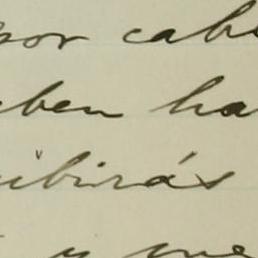 por cab
eben ha
ibirás
y me